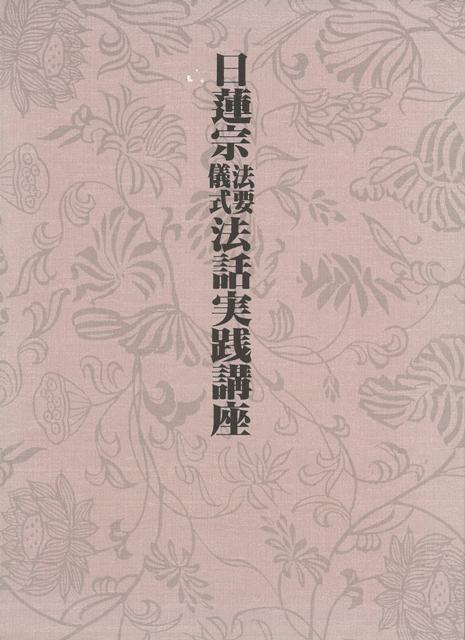 日蓮宗法要儀式法話実践講座